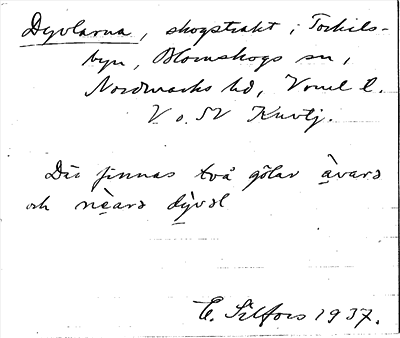 Dyvlarna, skogstrakt i Torkils-
byn, Blomskogs sn,
Nordmarks hd, Värml. l.
V o. SV Kurvtj.
Där finnas två gölar àvarə
och nèarə dy̆vəl
E. Silfors 1937.